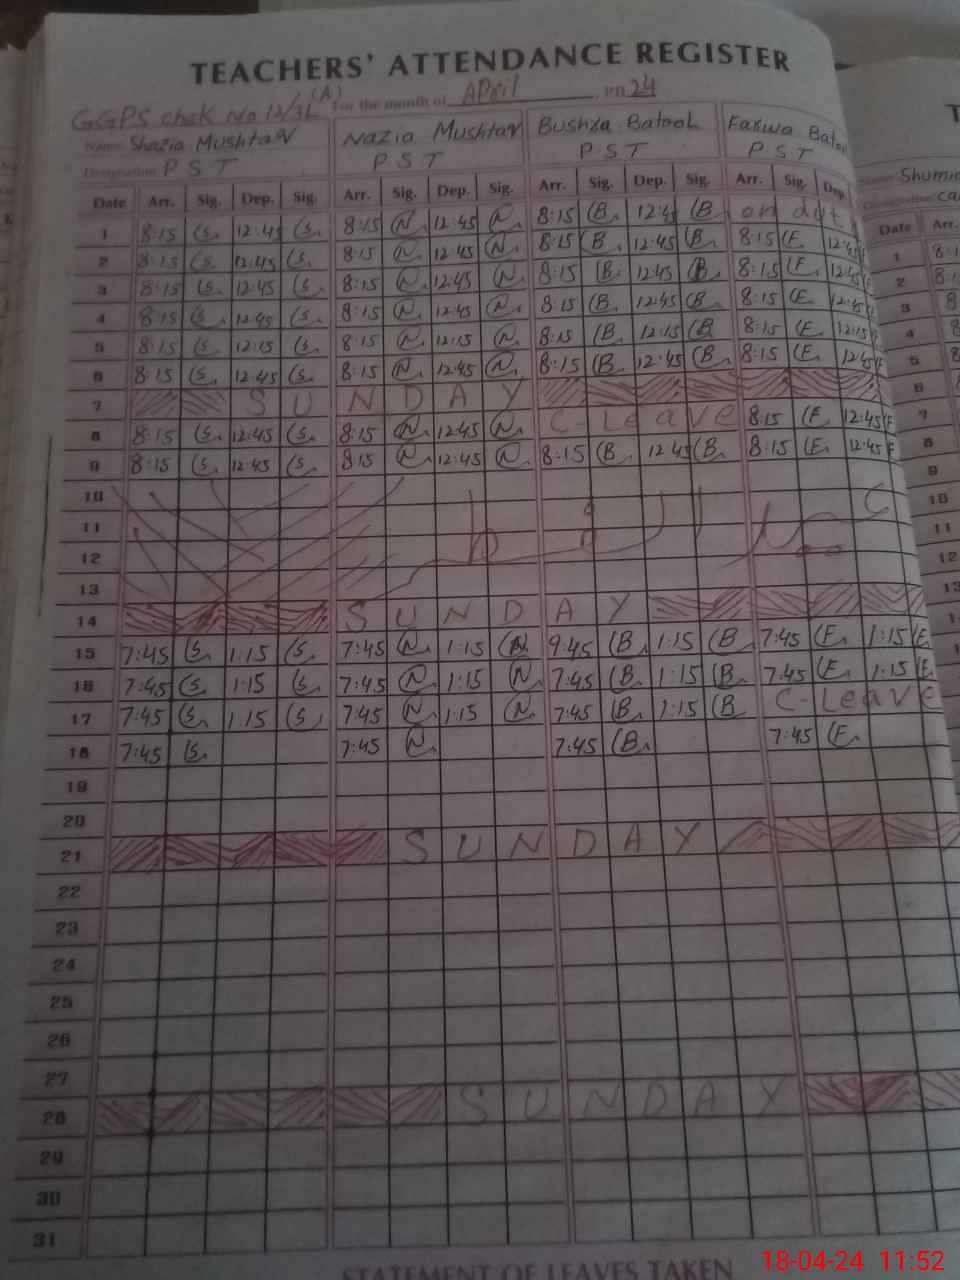 TEACHERS' ATTENDANCE REGISTER
GGPS chak No 12/3L (A) For the month of April 24
Name Shazia Mushtaq Nazia Mushtaq Bushra Batool Farwa
Designation P S T P S T P S T P S T
Date Arr. Sig. Dep. Sig. Arr. Sig. Dep. Sig. Arr. Sig. Dep. Sig. Arr. Sig. Dep.
1 8:15 (S. 12:45 (S. 8:15 N 12:45 N 8:15 (B. 12:45 (B on
2 8:15 (S. 12:45 (S. 8:15 N 12:45 N 8:15 (B 12:45 (B 8:15 (F 12:45
3 8:15 (S. 12:45 (S. 8:15 N 12:45 N 8:15 (B. 12:45 (B 8:15 (F 12:45
4 8:15 (S. 12:45 (S. 8:15 N 12:45 N 8:15 (B. 12:45 (B 8:15 (F 12:45
5 8:15 (S. 12:15 (S. 8:15 N 12:15 N 8:15 (B 12:15 (B 8:15 (F 12:15
6 8:15 (S. 12:45 (S. 8:15 N 12:45 N 8:15 (B 12:45 (B 8:15 (F 12:45
7 S U N D A Y
8 8:15 (S. 12:45 (S. 8:15 N 12:45 N C-Leave 8:15 (F 12:45 (F
9 8:15 (S. 12:45 (S. 8:15 N 12:45 N 8:15 (B 12:45 (B 8:15 (F 12:45 F
10
11
12
13
14 S U N D A Y
15 7:45 (S. 1:15 (S. 7:45 N 1:15 (N 9:45 (B 1:15 (B 7:45 (F 1:15 (F
16 7:45 (S. 1:15 (S. 7:45 N 1:15 N 7:45 (B 1:15 (B 7:45 (F 1:15 (F
17 7:45 (S. 1:15 (S. 7:45 N 1:15 N 7:45 (B 1:15 (B C-Leave
18 7:45 (S. 7:45 N 7:45 (B. 7:45 (F.
19
20
21 S U N D A Y
22
23
24
25
26
27
28 S U N D A Y
29
30
31
STATEMENT OF LEAVES TAKEN
Name
Designation
Date Arr.
1
2
3
4
5
6
7
8
9
10
11
12
13
18-04-24 11:52